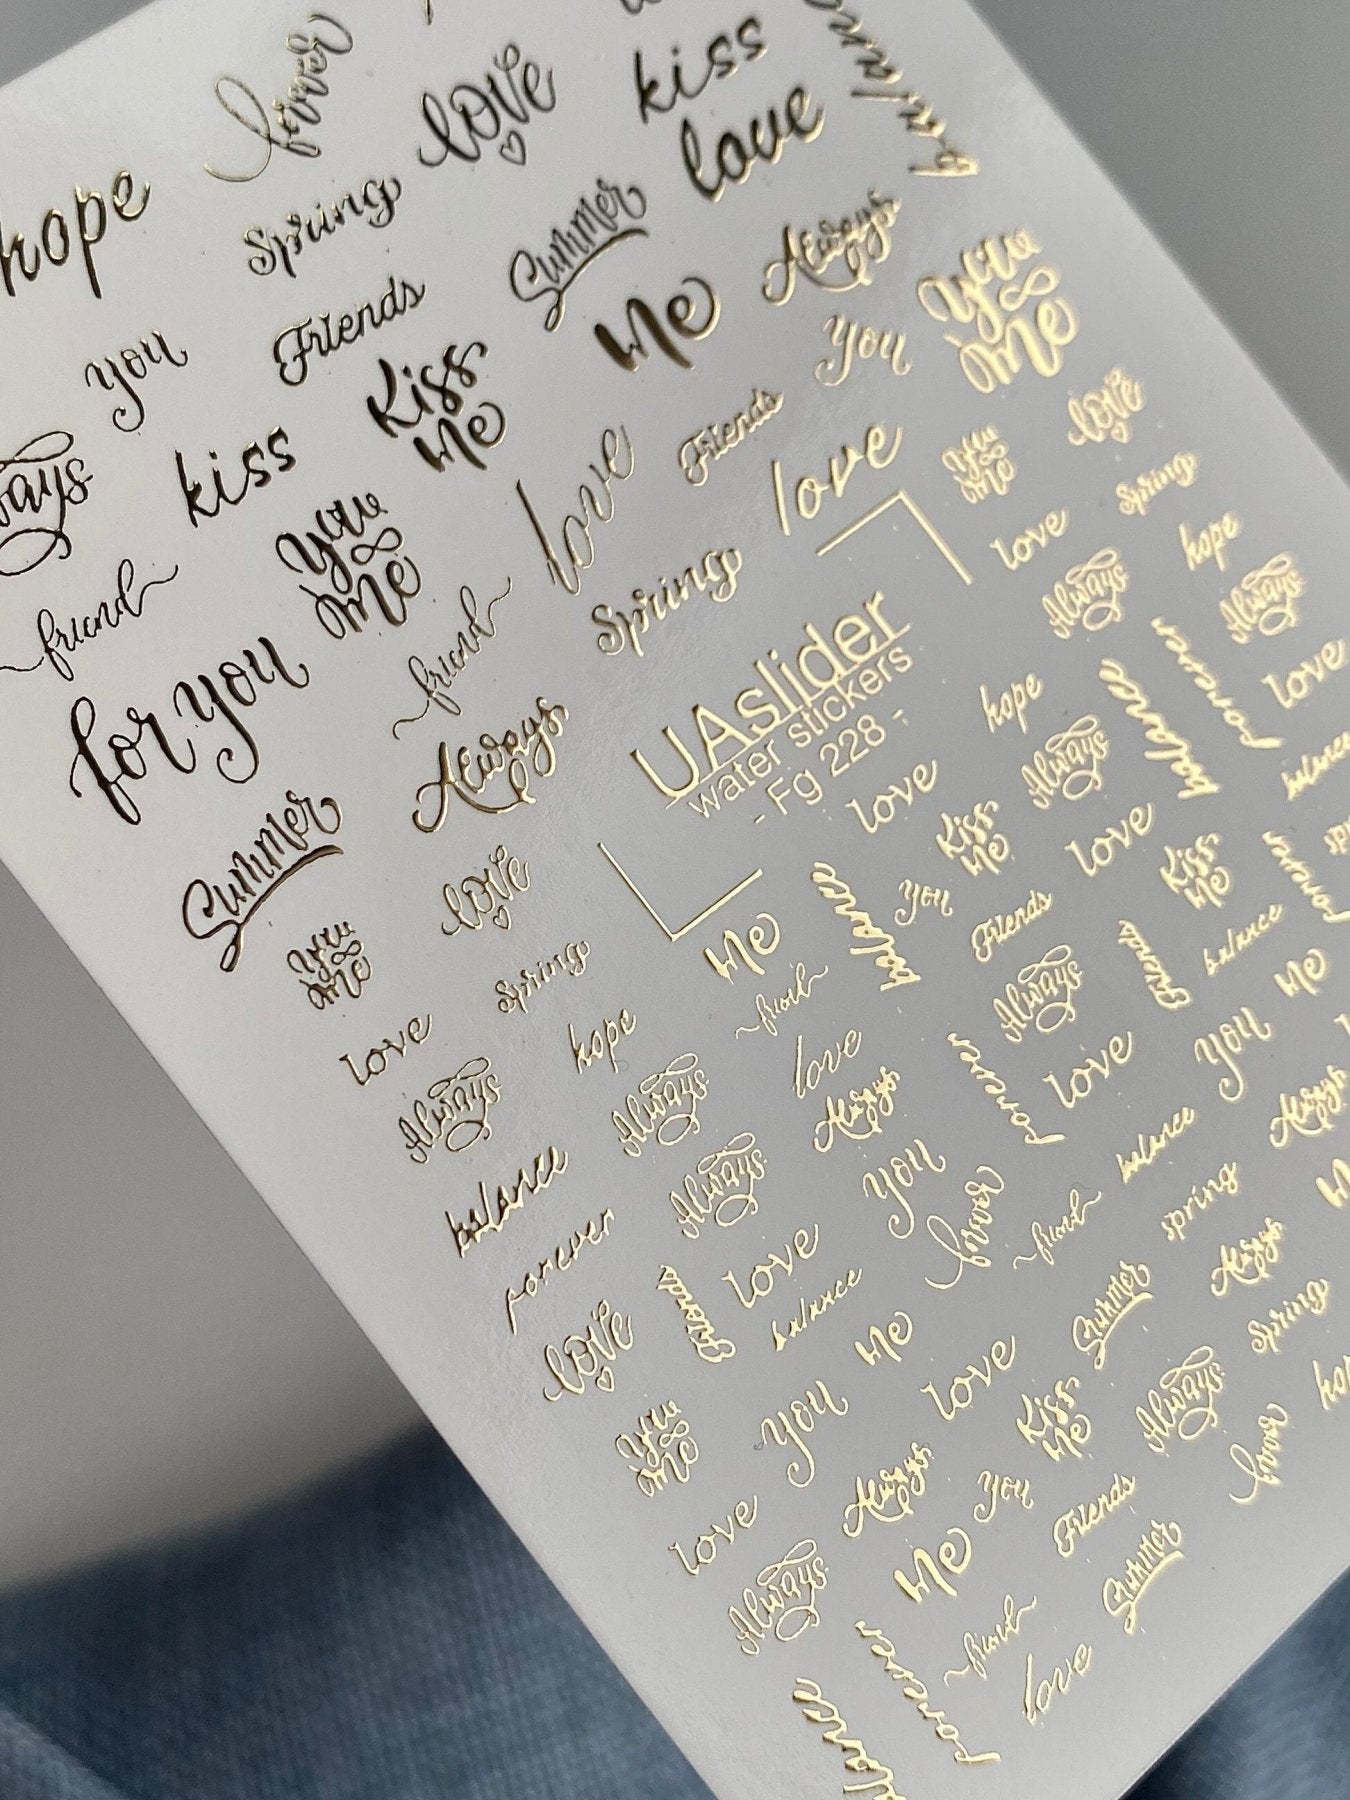 forever
love
kiss
love
balance
hope
Spring
Summer
Always
You
Friends
Me
You
You
Me
kiss
Kiss
Me
love
Friends
love
You
Me
love
Spring
friend
You
Me
friend
Spring
love
Always
hope
Always
for you
Always
UAslider
water stickers
- Fg 228 -
hope
balance
forever
love
Summer
love
Always
love
balance
You
Me
love
Spring
Me
balance
You
Kiss
Me
Friends
love
Kiss
Me
forever
love
Always
hope
Always
friend
love
Always
forever
Always
love
Friends
balance
You
Me
balance
forever
Always
love
Friends
love
balance
You
forever
friend
balance
spring
Always
Me
love
You
Me
You
Me
love
Kiss
Me
Summer
Always
Always
Spring
love
Always
Me
You
Friends
Always
forever
hope
balance
forever
friend
love
Summer